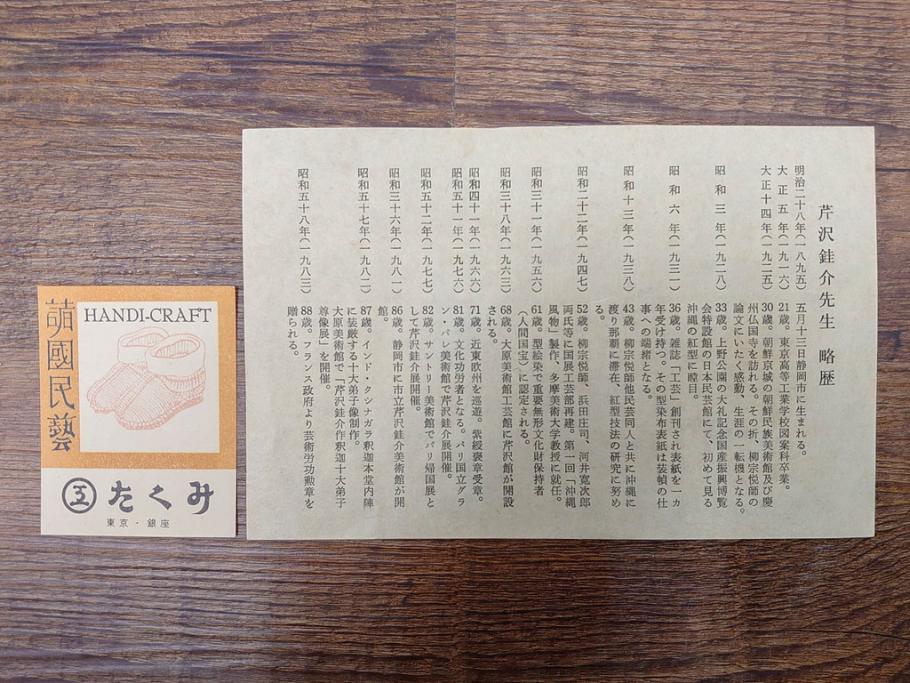 芹沢銈介先生 略歴
明治二十八年(一八九五) 五月十三日静岡市に生まれる。
大正五年(一九一六) 21歳。東京高等工業学校図案科卒業。
大正十四年(一九二五) 30歳。朝鮮京城の朝鮮民族美術館及び慶
州仏国寺を訪れる。その折、柳宗悦師の
論文にいたく感動、生涯の一転機となる。
昭和三年(一九二八) 33歳。上野公園の大礼記念国産振興博覧
会特設館の日本民芸館にて、初めて見る
沖縄の紅型に瞠目。
昭和六年(一九三一) 36歳。雑誌「工芸」創刊され表紙を一ヵ
年受け持つ。その型染布表紙は装幀の仕
事への端緒となる。
昭和十三年(一九三八) 43歳。柳宗悦師他民芸同人と共に沖縄に
渡り那覇に滞在、紅型技法の研究に努め
る。
昭和二十二年(一九四七) 52歳。柳宗悦師、浜田庄司、河井寛次郎
両氏等に国展工芸部再建。第一回「沖縄
風物」製作、多摩美術大学教授に就任。
昭和三十一年(一九五六) 61歳。型絵染で重要無形文化財保持者
(人間国宝)に認定される。
昭和三十八年(一九六三) 68歳。大原美術館工芸館に芹沢館が開設
される。
昭和四十一年(一九六六) 71歳。近東欧州を巡遊。紫綬褒章受章。
昭和五十一年(一九七六) 81歳。文化功労者となる。パリ国立グラ
ン・パレ美術館で芹沢銈介展開催。
昭和五十二年(一九七七) 82歳。サントリー美術館でパリ帰国展と
して芹沢銈介展開催。
昭和五十六年(一九八一) 86歳。静岡市に市立芹沢銈介美術館が開
館。
昭和五十七年(一九八二) 87歳。インド・クシナガラ釈迦本堂内陣
に装厳する十大弟子像制作。
大原美術館で「芹沢銈介作釈迦十大弟子
尊像展」を開催。
昭和五十八年(一九八三) 88歳。フランス政府より芸術功労勲章を
贈られる。
諸國民藝
HANDI-CRAFT
工 たくみ
東京・銀座